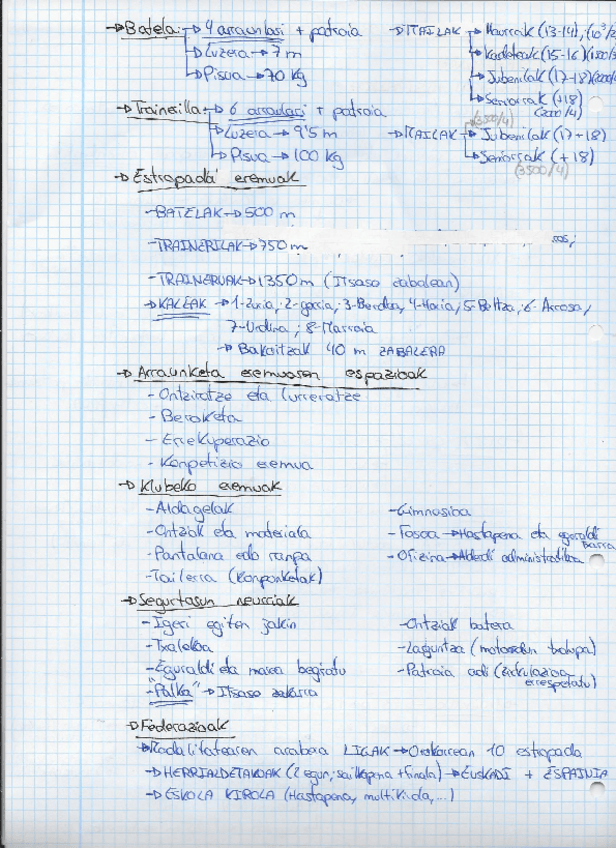 →Batela→4 arraunlari + patroia
→Luzera→7 m
→Pisua→70 Kg
→MAILAK→Haurrak (13-14),
→Kadeteak (15-16)
→Jubenilak (17-18)
→Seniorrak (+18)
(2000/4)
→Trainerilla→6 arraulari + patroia
→Luzera→9'5 m
→Pisua→100 Kg
(3500/4)
→MAILAK→Jubenilak (17-18)
→Seniorrak (+18)
(3500/4)
→Estropada eremuak
-BATELAK→500 m
-TRAINERILAK→750 m
-TRAINERUAK→1350 m (Itsaso zabalean)
→KALEAK→1-Zuria, 2-gorria, 3-Berdea, 4-Horia, 5-Beltza, 6-Arrosa,
7-Urdina, 8-Marroia
→Bakoitzak 40 m ZABALERA
→Arraunketa eremuaren espazioak
-Ontziratze eta lurreratze
-Beroketa
-Errekuperazio
-Konpetizio eremua
→Klubeko eremuak
-Aldagelak
-Ontziak eta materiala
-Pantalana edo ranpa
-Tailerra (Konponketak)
-Gimnasioa
-Fosoa→Hastapena eta eguraldi txarra
-Ofizina→Alderdi administratiboa
→Segurtasun neurriak
-Igeri egiten jakin
-Txalekoa
-Eguraldi eta marea begiratu
-"Palka"→Itsaso zakarra
-Ontziak batera
-Laguntza (motorrekin txalupa)
-Patroia adi (zirkulazioa errespetatu)
→Federazioak
→Modalitatearen arabera LIGAK→Orokorrean 10 estropada
→HERRIALDETAKOAK (2 egun; sailkapena + finala)→EUSKADI + ESPAINIA
→ESKOLA KIROLA (Hastapena, multikirola,...)